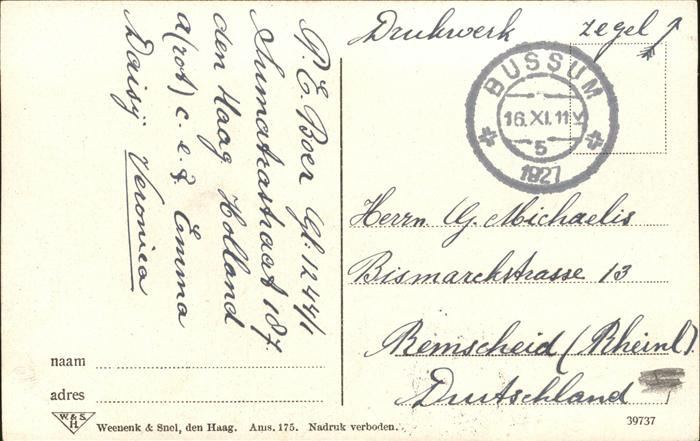 Drukwerk zegel
BUSSUM
16.XI.11V
5
1927
P. E. Boer Gl: 12441
Sumatrastraat 187
den Haag Holland
a(rot) c. e. g. Emma
Daisij Veronica
Herrn G. Michaelis
Bismarckstrasse 13
Remscheid (Rheinl).
Deutschland
naam
adres
W. & S.
H
Weenenk & Snel, den Haag. Ams. 175. Nadruk verboden.
39737